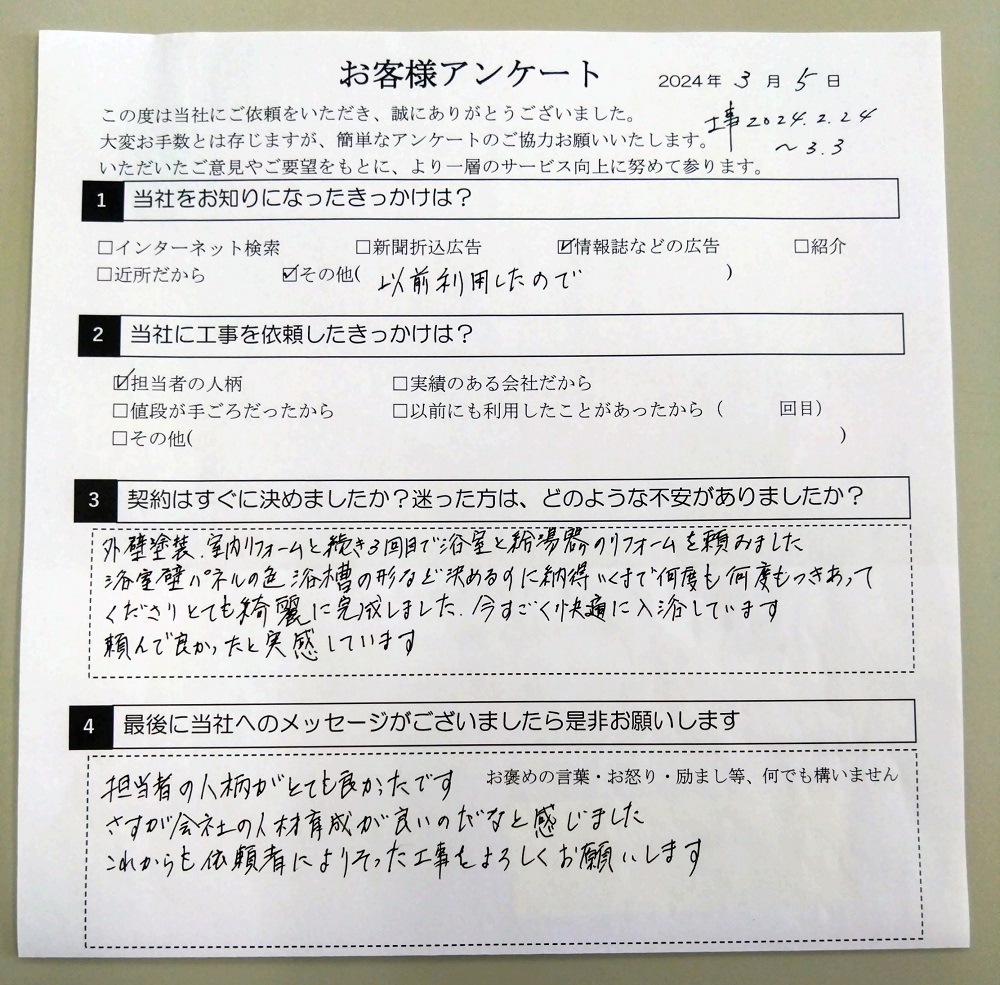 お客様アンケート 2024年 3 月 5 日
この度は当社にご依頼をいただき、誠にありがとうございました。
工事 2024.2.24
大変お手数とは存じますが、簡単なアンケートのご協力お願いいたします。
～3.3
いただいたご意見やご要望をもとに、より一層のサービス向上に努めて参ります。
1 当社をお知りになったきっかけは？
□インターネット検索 □新聞折込広告 ☑情報誌などの広告 □紹介
□近所だから ☑その他( 以前利用したので )
2 当社に工事を依頼したきっかけは？
☑担当者の人柄 □実績のある会社だから
□値段が手ごろだったから □以前にも利用したことがあったから（ 回目）
□その他( )
3 契約はすぐに決めましたか？迷った方は、どのような不安がありましたか？
外壁塗装、室内リフォームと続き3回目で浴室と給湯器のリフォームを頼みました
浴室壁パネルの色 浴槽の形など決めるのに納得いくまで何度も何度もつきあって
くださりとても綺麗に完成しました. 今すごく快適に入浴しています
頼んで良かったと実感しています
4 最後に当社へのメッセージがございましたら是非お願いします
お褒めの言葉・お怒り・励まし等、何でも構いません
担当者の人柄がとても良かったです
さすが会社の人材育成が良いのだなと感じました
これからも依頼者によりそった工事をよろしくお願いします